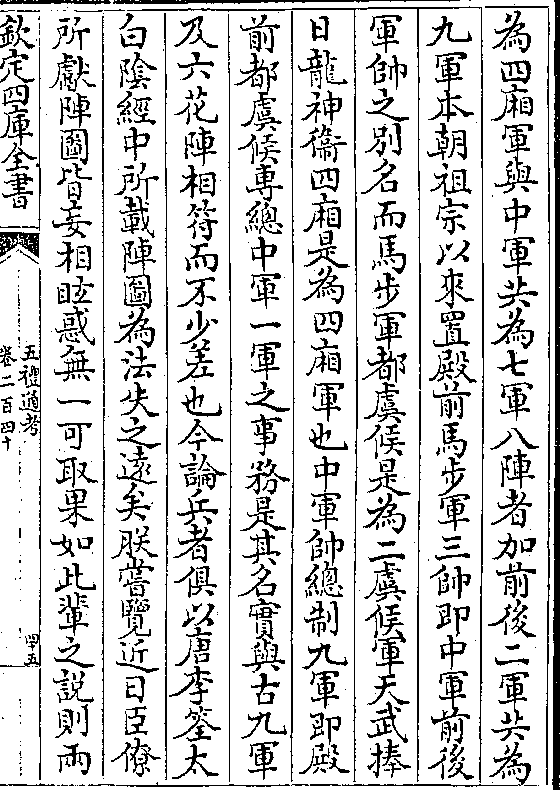 為四廂軍與中軍共為七軍八陣者加前後二軍共為
九軍本朝祖宗以來置殿前馬步軍三帥即中軍前後
軍帥之别名而馬步軍都虞候是為二虞候軍天武捧
日龍神衞四廂是為四廂軍也中軍帥總制九軍即殿
前都虞候専總中軍一軍之事務是其名實與古九軍
及六花陣相符而不少差也今論兵者俱以唐李筌太
白陰經中所載陣圖為法失之逺矣朕嘗覽近日臣僚
所獻陣圖皆妄相眩惑無一可取果如此輩之説則兩
欽定四庫全書
五禮通考
卷二百四十
四五